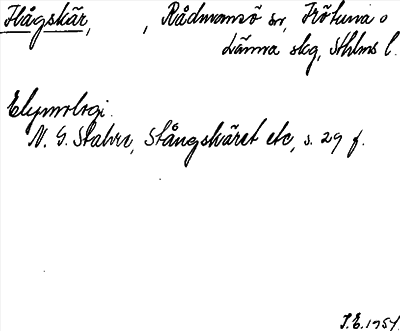 Flågskär, , Rådmansö sn, Frötuna o
Länna skg, Sthlms l.
Etymologi.
N. G. Stahre, Stångskäret etc, s. 29 f.
J.E. 1957.